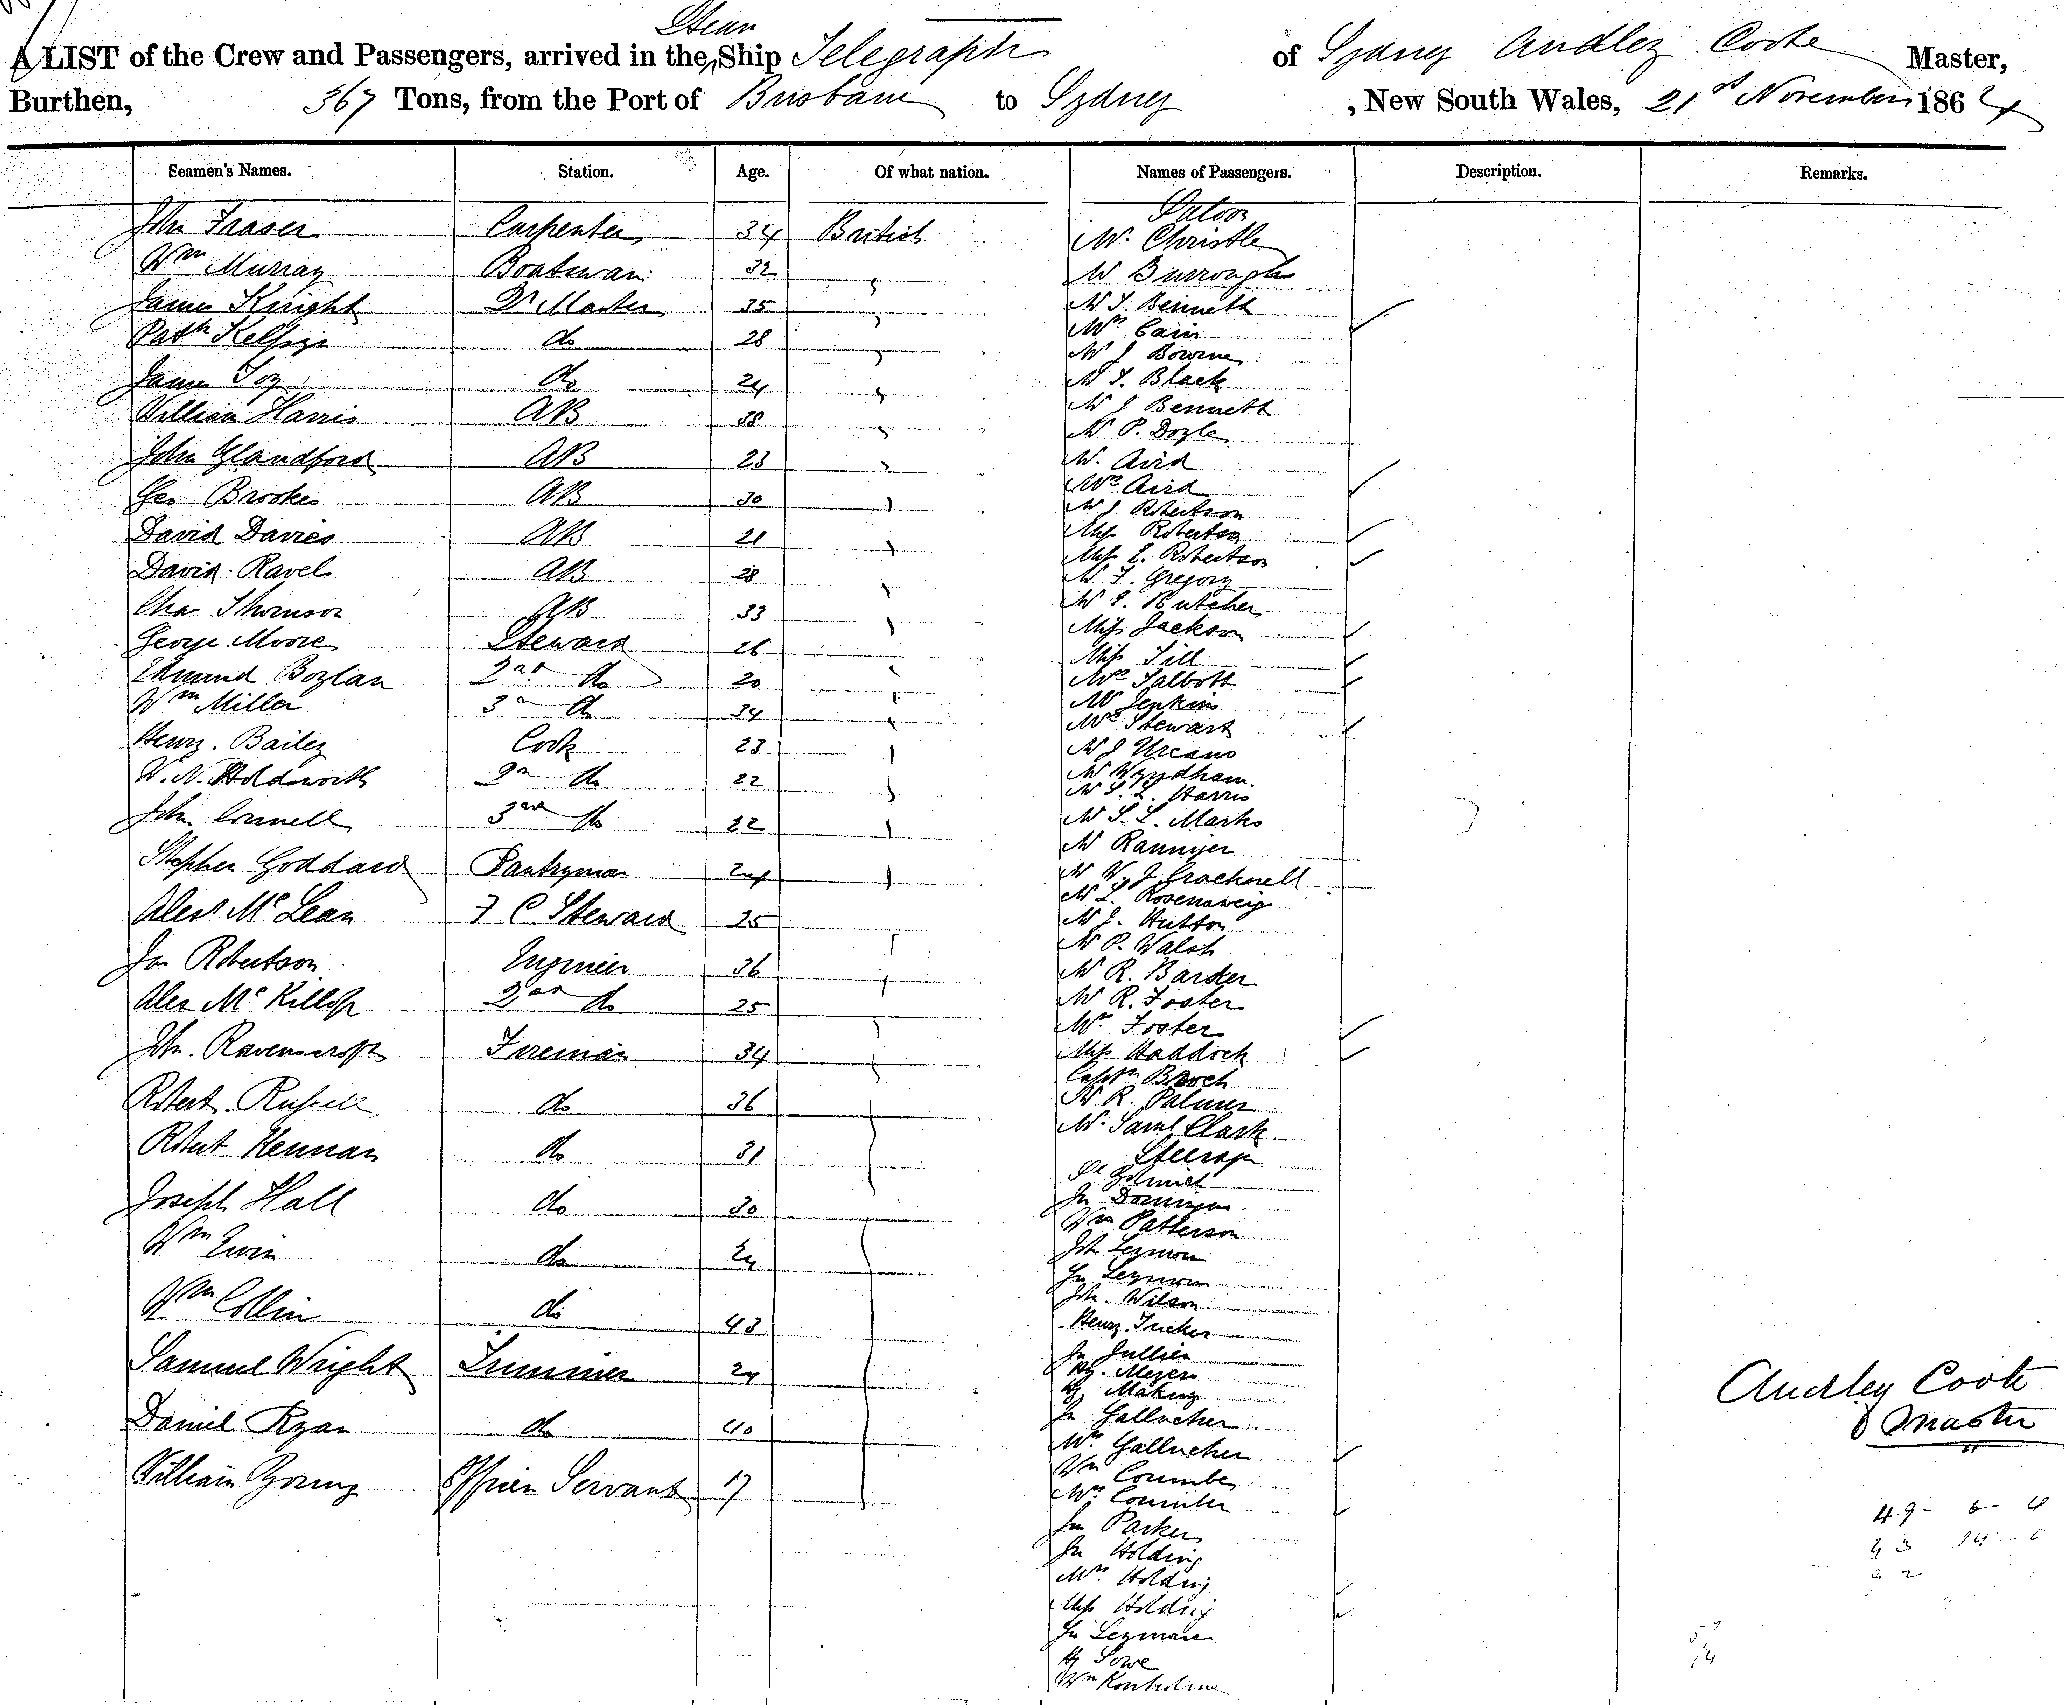 A LIST of the Crew and Passengers, arrived in the Steam Ship Telegraph of Sydney Audley Coote Master,
Burthen, 367 Tons, from the Port of Brisbane to Sydney, New South Wales, 21st November 1864
Seamen's Names. Station. Age. Of what nation. Names of Passengers. Description. Remarks.
John Fraser Carpenter 34 British
Wm Murray Boatswain 32
James Knight Qr Master 35
do 28
James Foy do 24
William Harris AB 38
John Glandford AB 23
Geo Brookes AB 30
David Davies AB 21
David Ravel AB 28
Chas Thomson AB 33
George Moore Steward 26
Edmund Boylan 2nd do 20
Wm Miller 3rd do 34
Henry Bailey Cook 23
W. N. Holdsworth 2nd do 22
John Connell 3rd do 22
Stephen Goddard Pantryman 24
Alexr McLean F C Steward 25
Jas Robertson Engineer 36
Alex McKillop 2nd do 25
Jno. Ravenscroft Fireman 34
Robert Russell do 36
Robert Kennan do 31
Joseph Hall do 30
Wm Ewin do 24
Wm Collin do 43
Samuel Wright Trimmer 24
Daniel Ryan do 40
William Young Officers Servant 17
Saloon
Mr Christle
Mr Burroughs
Mr T. Bennett
Mrs Cain
Mr J Bourne
Mr T. Black
Mr J Bennett
Mr P. Doyle
Mr Aird
Mrs Aird
Mr J Robertson
Miss Robertson
Miss E. Robertson
Mr F. Gregory
Mr E. Butcher
Miss Jackson
Miss Till
Mrs Talbott
Mr Jenkins
Mrs Stewart
Mr J Urcans
Mr Wyndham
Mr S. L. Harris
Mr S. L. Marks
Mr Ranniger
Mr W. J Cracknell
Mr L. Rosensweig
Mr J. Hutton
Mr P. Walsh
Mr R. Barder
Mr R. Foster
Mrs Foster
Miss Haddock
Captn Broch
Mr R. Palmer
Mr Saml Clark
Steerage
Jn
Wm Patterson
Jno Leymon
Jn Leymon
Jno. Wilson
Henry Tucker
Jn Jullien
Hy. Meyers
Hy Making
Jn Gallucher
Mrs Gallucher
Wm Coumbe
Mrs Coumbe
Jn Parker
Jn Holding
Mrs Holding
Miss Holding
Jn Leymare
Hy Lowe
Wm
Audley Coote
Master
49 - 6 - 4